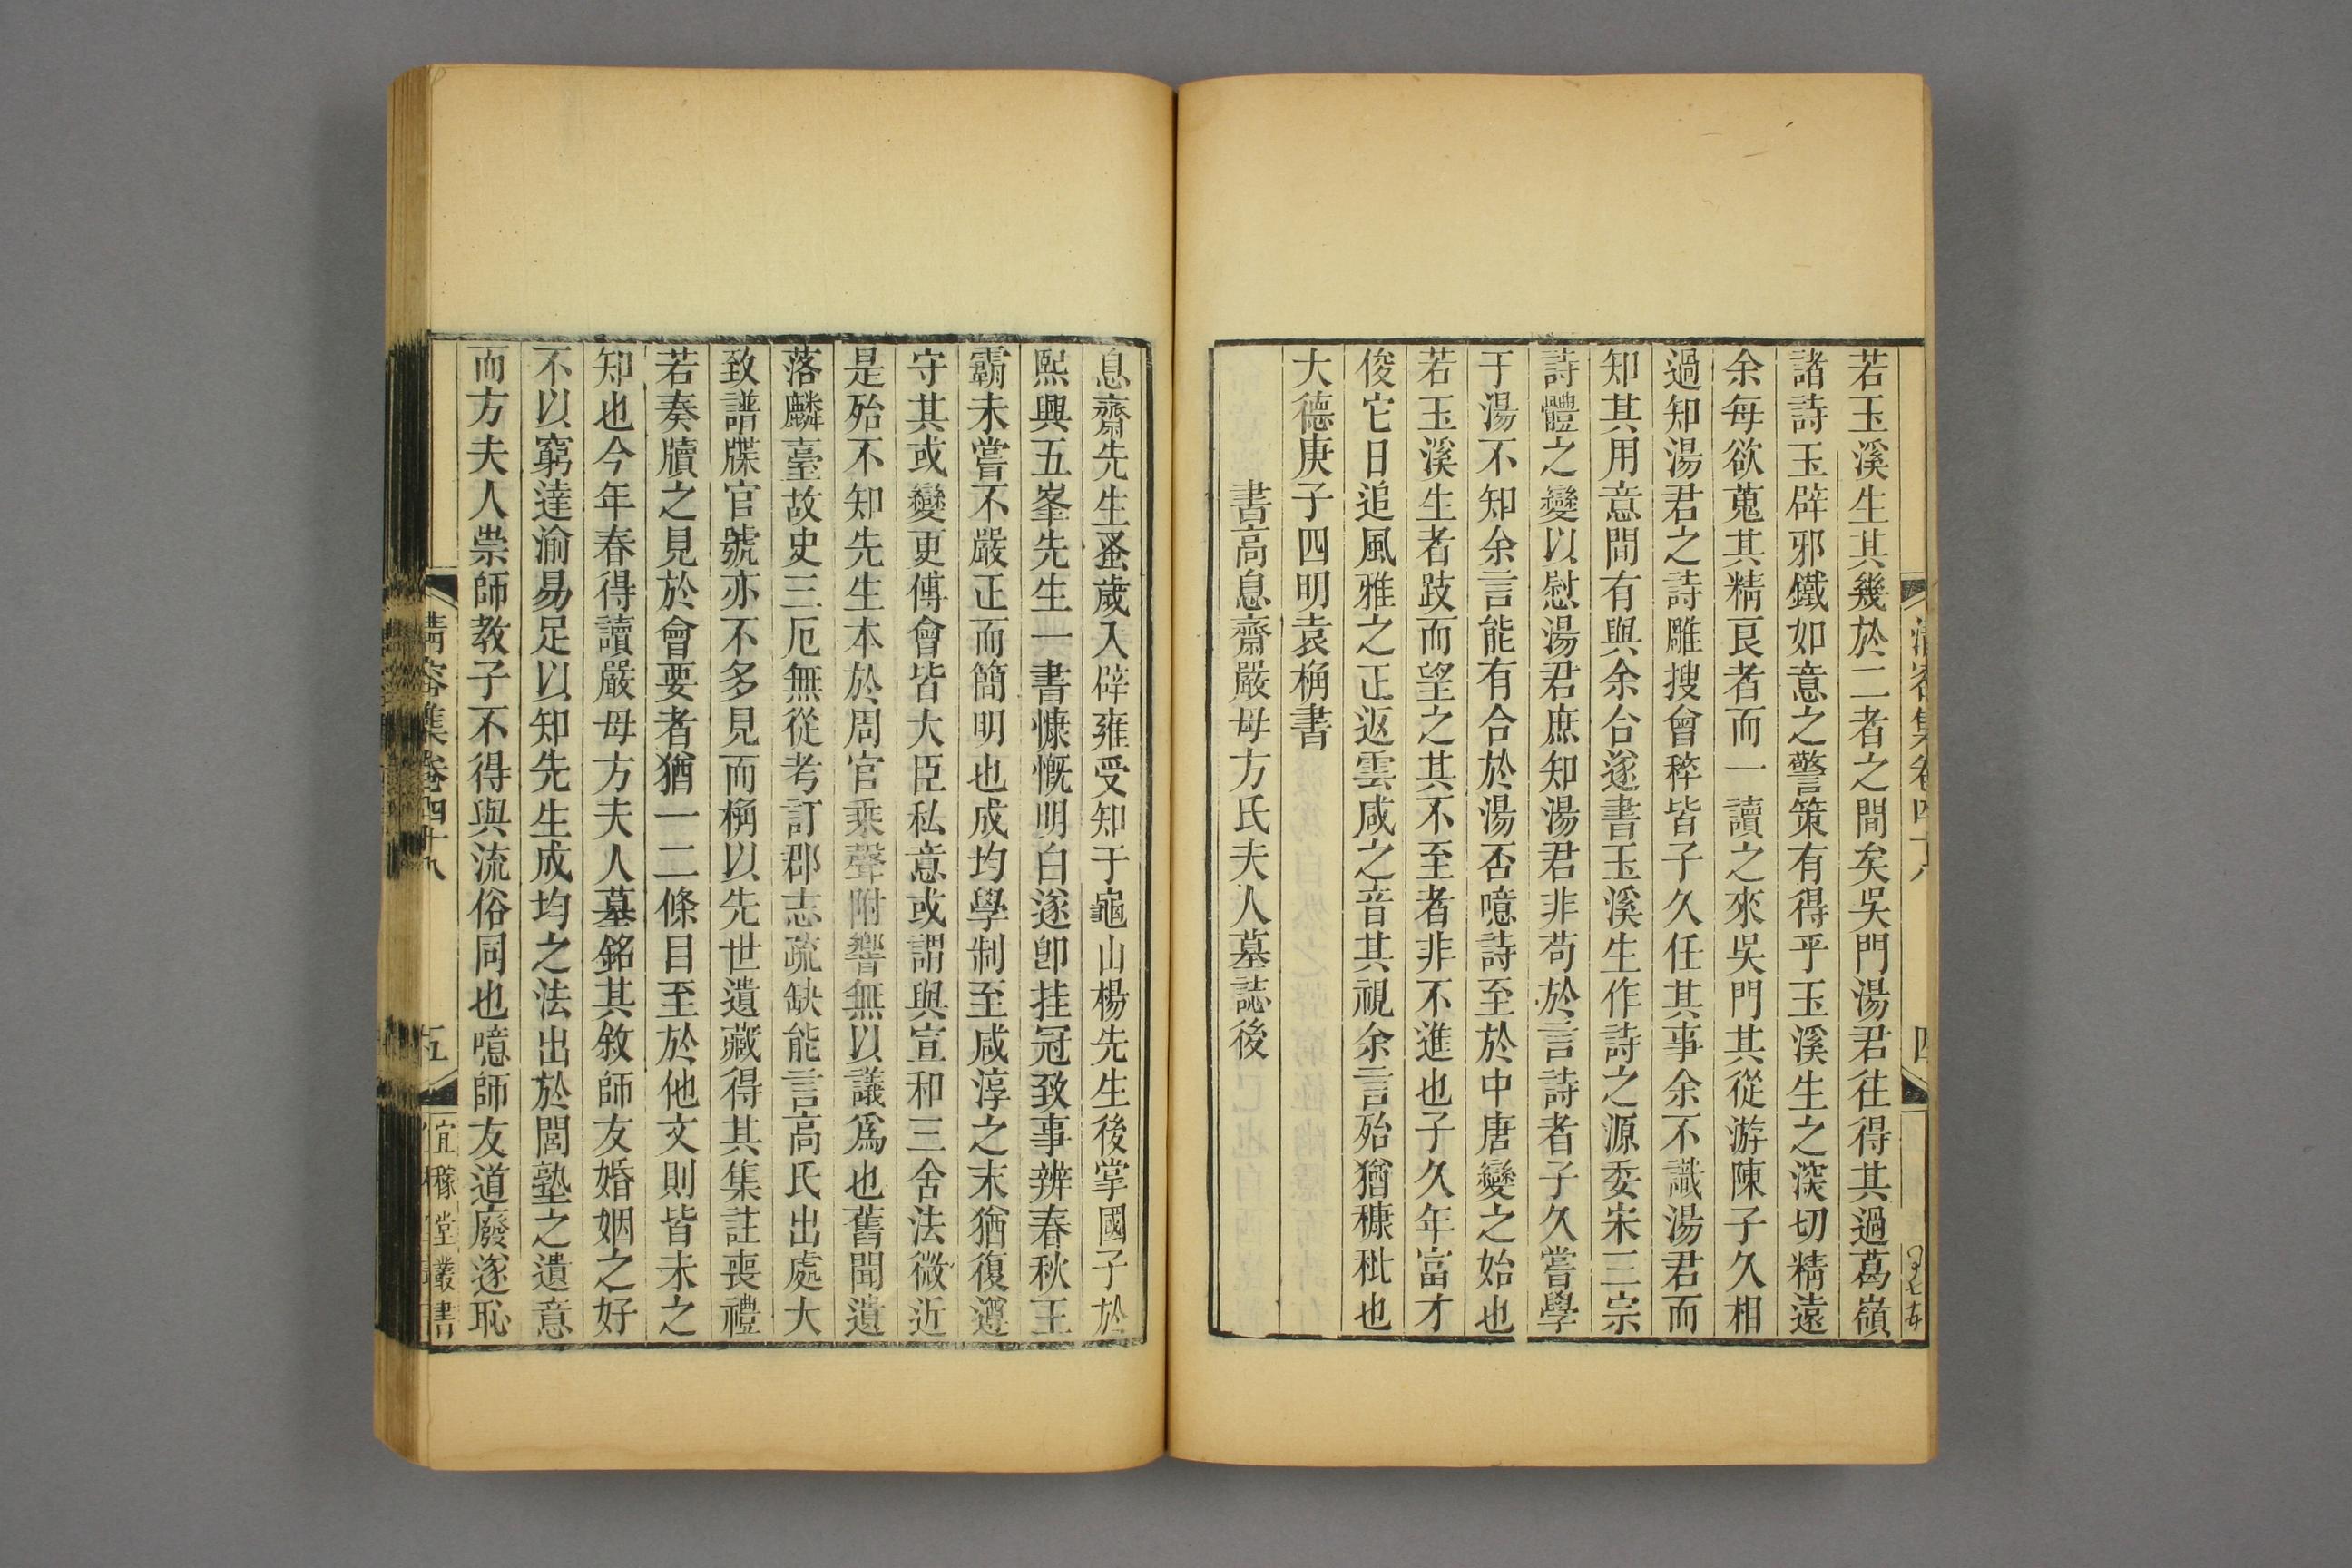 清容集卷四十八
四
若玉溪生其幾於二者之間矣吳門湯君往得其過葛嶺
諸詩玉辟邪鐵如意之警策有得乎玉溪生之深切精遠
余每欲蒐其精良者而一讀之來吳門其從游陳子久相
過知湯君之詩雕搜會稡皆子久任其事余不識湯君而
知其用意間有與余合遂書玉溪生作詩之源委宋三宗
詩體之變以慰湯君庶知湯君非苟於言詩者子久嘗學
于湯不知余言能有合於湯否噫詩至於中唐變之始也
若玉溪生者跂而望之其不至者非不進也子久年富才
俊它日追風雅之正返雲咸之音其視余言殆猶穅秕也
大德庚子四明袁桷書
書高息齋嚴母方氏夫人墓誌後
息齋先生蚤歲入辟雍受知于龜山楊先生後掌國子於
熙興五峯先生一書慷慨明白遂卽挂冠致事辨春秋王
霸未嘗不嚴正而簡明也成均學制至咸淳之末猶復遵
守其或變更傅會皆大臣私意或謂與宣和三舍法微近
是殆不知先生本於周官乘聲附響無以議爲也舊聞遺
落麟臺故史三厄無從考訂郡志疏缺能言高氏出處大
致譜牒官號亦不多見而桷以先世遺藏得其集註喪禮
若奏牘之見於會要者猶一二條目至於他文則皆未之
知也今年春得讀嚴母方夫人墓銘其敘師友婚姻之好
不以窮達渝易足以知先生成均之法出於閭塾之遺意
而方夫人祟師教子不得與流俗同也噫師友道廢遂恥
清容集卷四十八
五
宜稼堂叢書